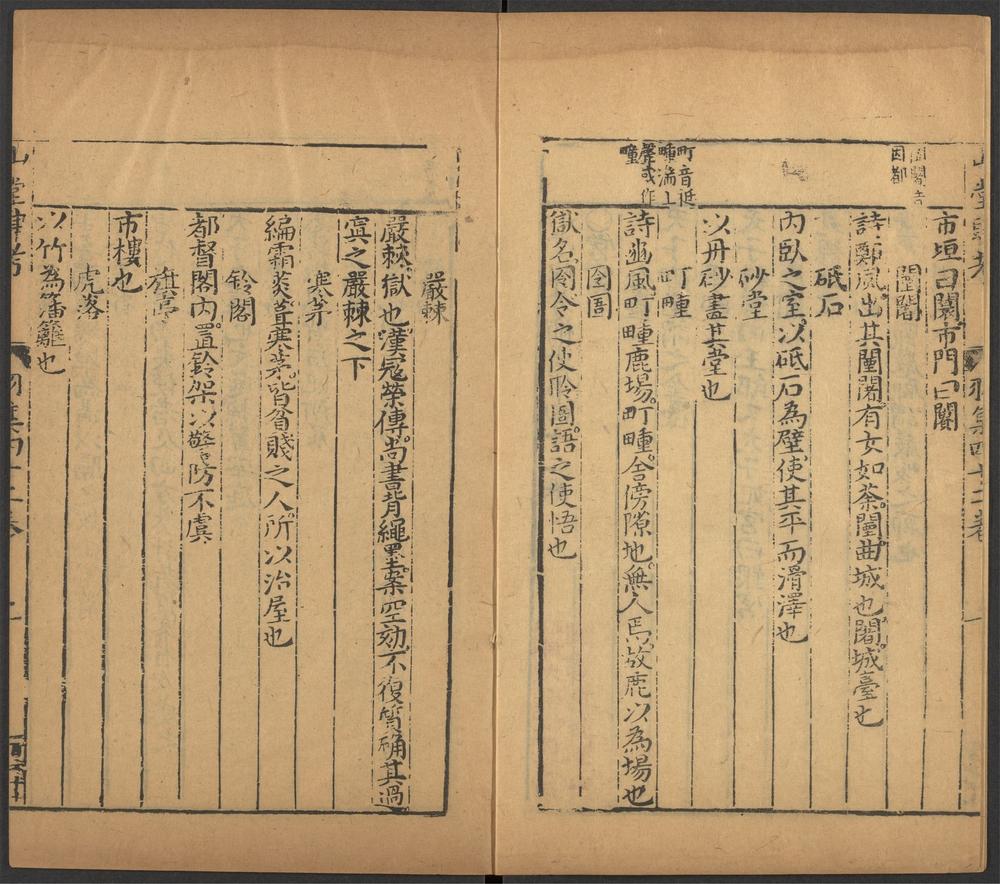 市垣曰闤市門曰闠
闉闍
詩鄭風出其闉闍有女如荼闉曲城也闍城臺也
砥石
內臥之室以砥石為壁使其平而滑澤也
砂堂
以丹砂畫其堂也
町畽
詩豳風町畽鹿場町畽舍傍隙地無人焉故鹿以為場也
囹圄
獄名囹令之使聆圄語之使悟也
闉闍音
因都
町音挺
畽湍上
聲或作
疃
嚴棘
嚴棘獄也漢寇榮傳尚書背繩墨案空劾不復質确其過
寘之嚴棘之下
寒茅
編霜菼葺寒茅皆貧賤之人所以治屋也
鈴閣
都督閣內置鈴架以警防不虞
旗亭
市樓也
虎落
以竹為籓籬也
山堂肆考
羽集四十二卷